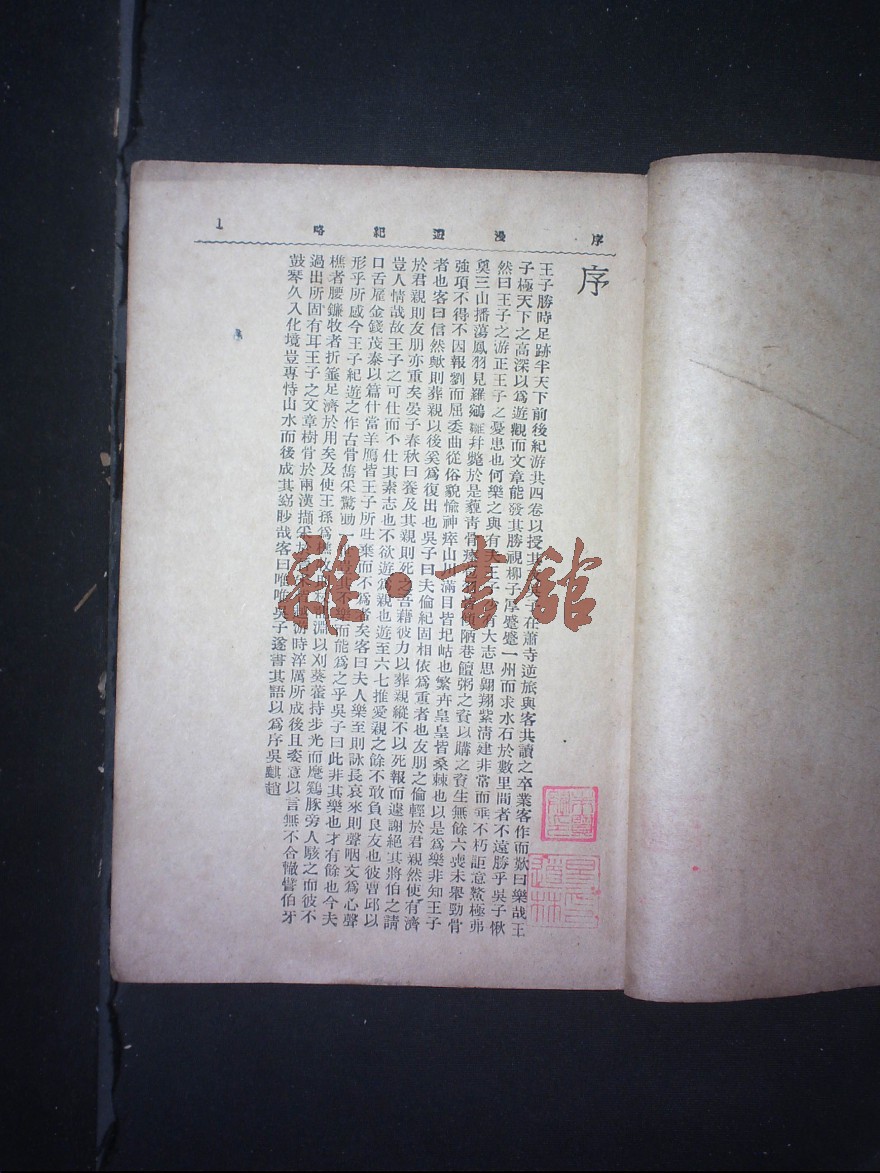 序 漫遊紀略 1
序
王子勝時足跡半天下前後紀游共四卷以授其吳子在蕭寺逆旅與客共讀之卒業客作而歎曰樂哉王
子極天下之高深以爲遊觀而文章能發其勝視柳子厚蹙蹙一州而求水石於數里間者不遠勝乎吳子愀
然曰王子之游正王子之憂患也何樂之與有夫王子有大志思翺翔紫淸建非常而垂不朽詎意鰲極弗
奠三山播蕩鳳羽見羅鵷雛幷斃於是薶靑骨陋巷饘粥之資以購之資生無餘六喪未舉勁骨
強項不得不因報劉而屈委曲從俗貌愉神瘁山川滿目皆圯岵也繁卉皇皇皆桑棘也以是爲樂非知王子
者也客曰信然歟則葬親以後奚爲復出也吳子曰夫倫紀固相依爲重者也友朋之倫輕於君親然使有濟
於君親則友朋亦重矣晏子春秋曰養及其親則死之吾藉彼力以葬親縱不以死報而遽謝絕其將伯之請
豈人情哉故王子之可仕而不仕其素志也不欲遊爲親也遊至六七推愛親之餘不敢負良友也彼曹邱以
口舌雇金錢茂泰以篇什當羊鴈皆王子所吐棄而不爲者矣客曰夫人樂至則詠長哀來則聲咽文爲心聲
形乎所感今王子紀遊之作古骨雋采驚動一而能爲之乎吳子曰此非其樂也才有餘也今夫
樵者腰鐮牧者折箠足濟於用矣及使王孫爲樵淵以刈葵藿持步光而麾鷄豚旁人駭之而彼不
過出所固有耳王子之文章樹骨於兩漢擷采於游時淬厲所成後且委意以言無不合轍譬伯牙
鼓琴久入化境豈專恃山水而後成其窈眇哉客曰唯唯吳子遂書其語以爲序吳騏趙
雜·書館